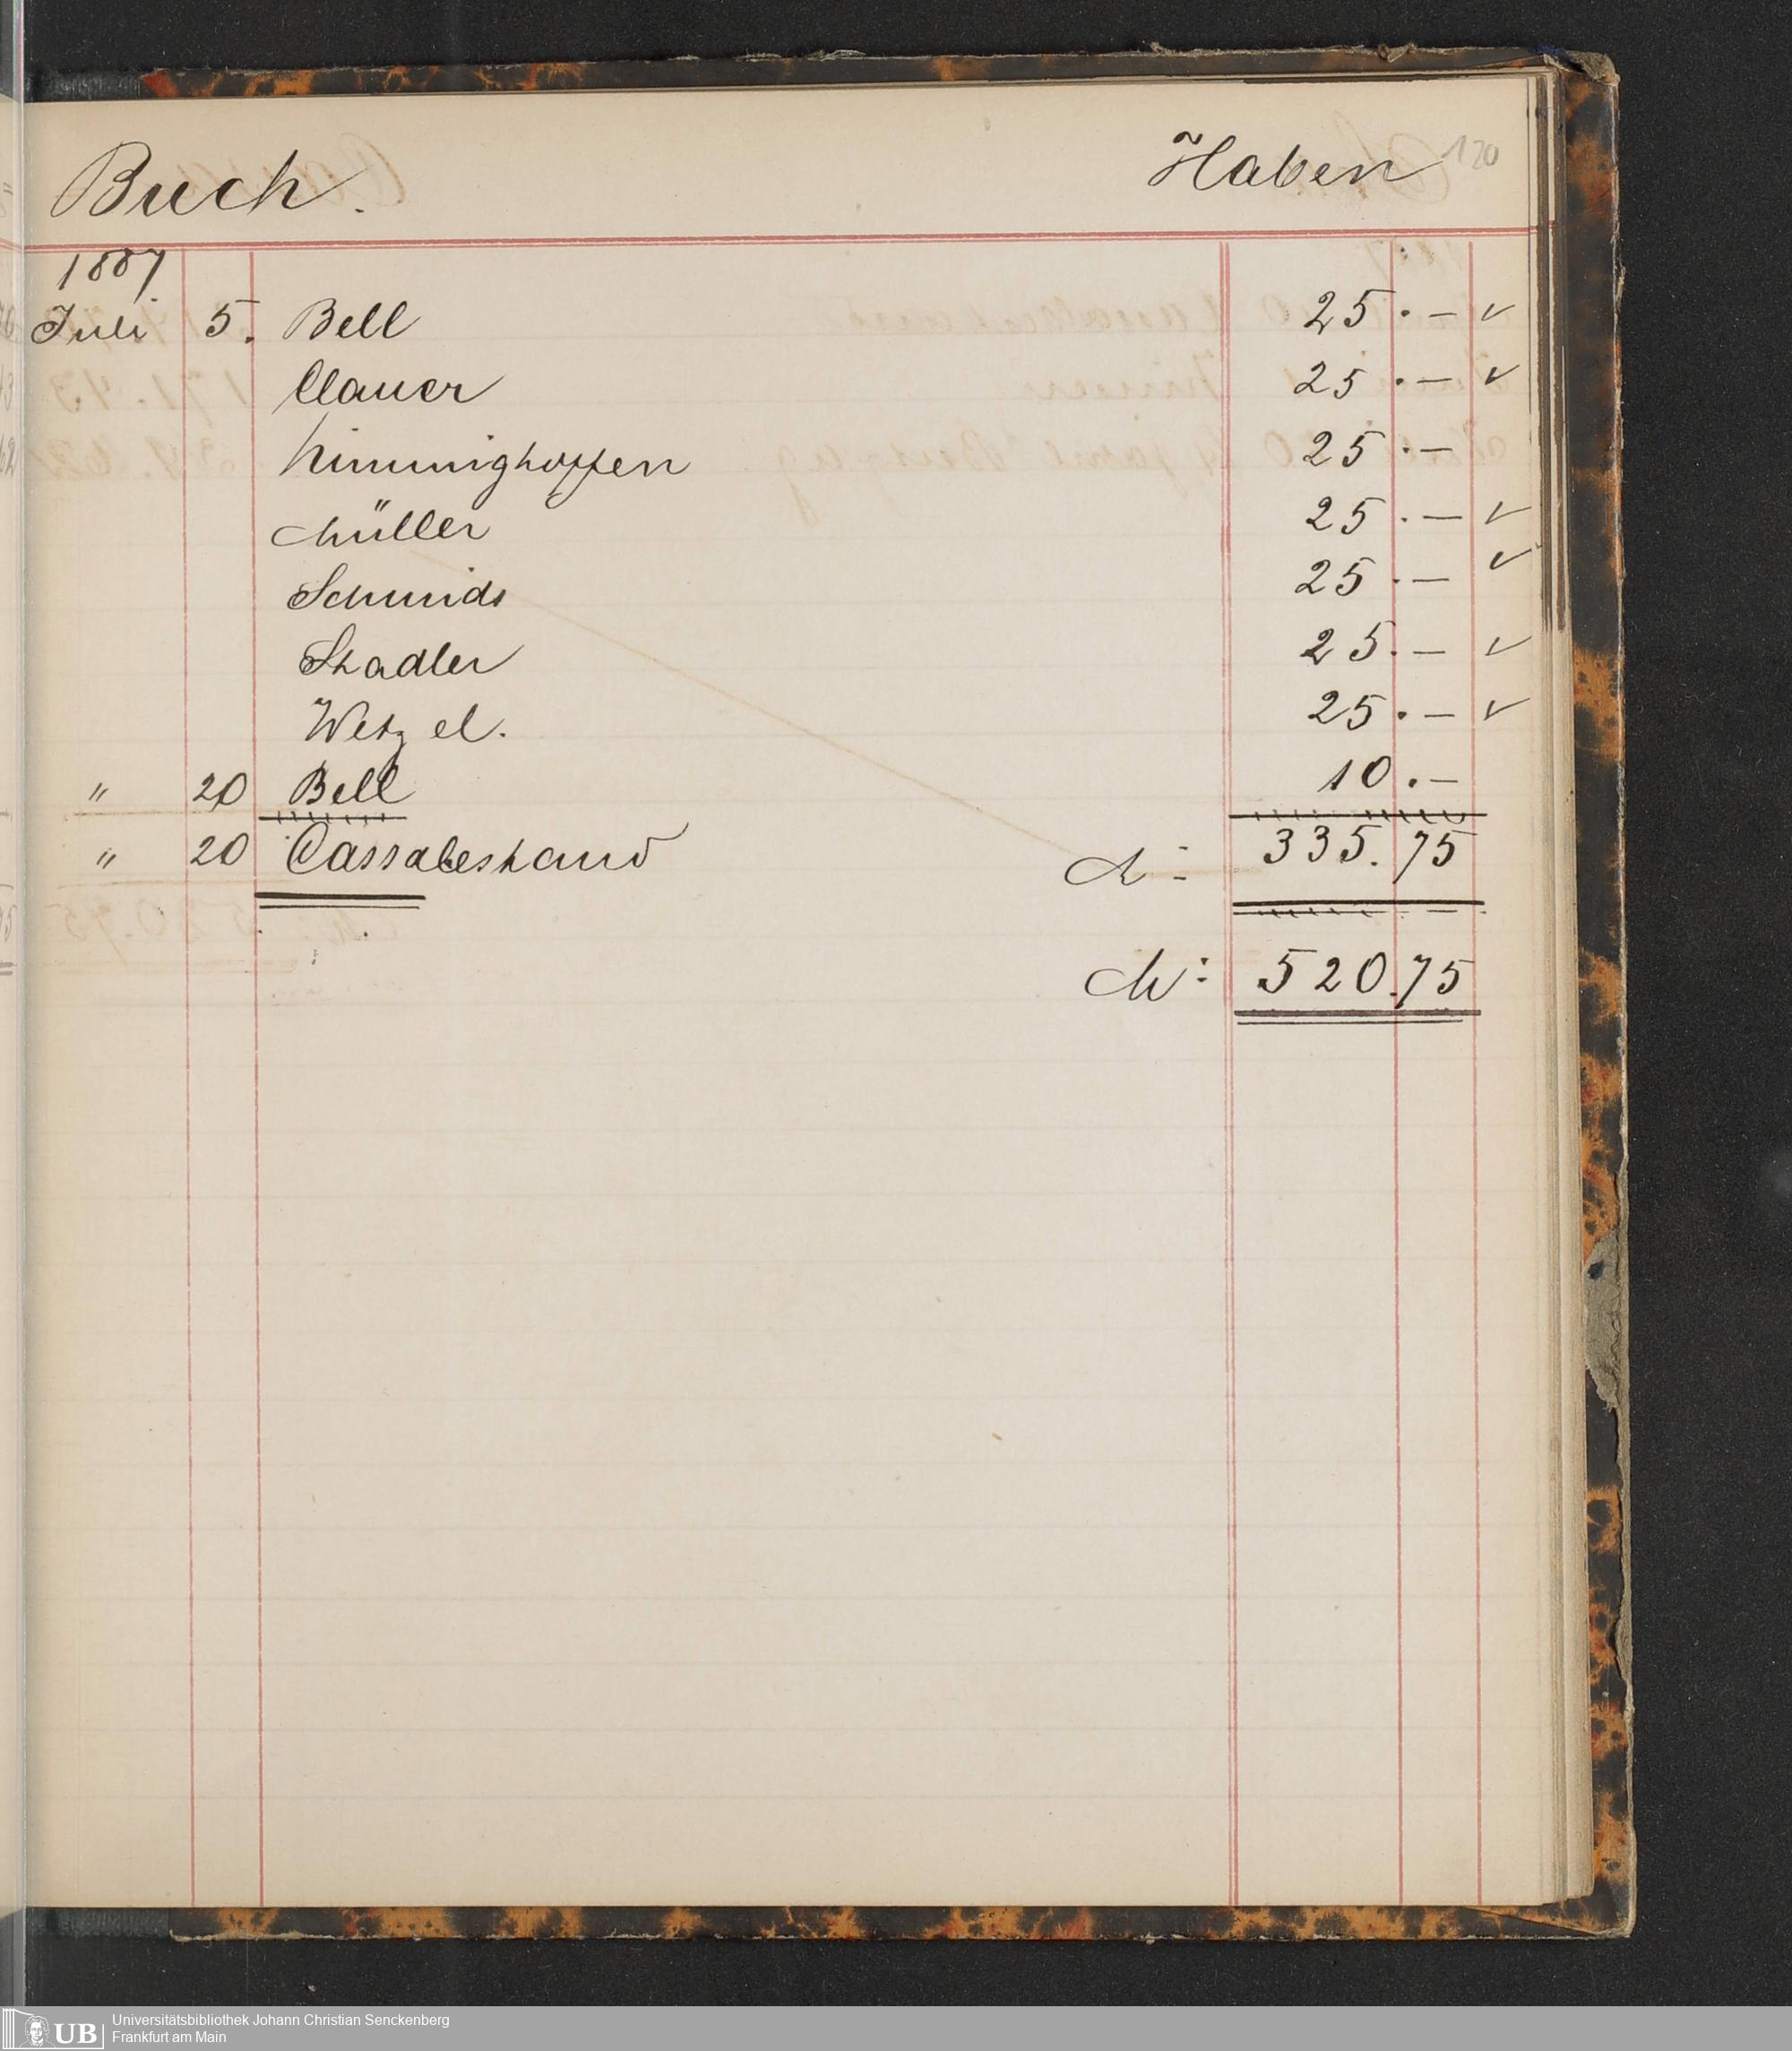 Buch.
Haben
120
1887
Juli 5. Bell 25.— ✓
Clauer 25.— ✓
Kimmighoffen 25.—
Müller 25.— ✓
Schmidt 25.— ✓
Stadler 25.— ✓
Wetzel. 25.— ✓
" 20 Bell 10.—
" 20 Cassabestand M: 335.75
M: 520.75
UB
Universitätsbibliothek Johann Christian Senckenberg
Frankfurt am Main